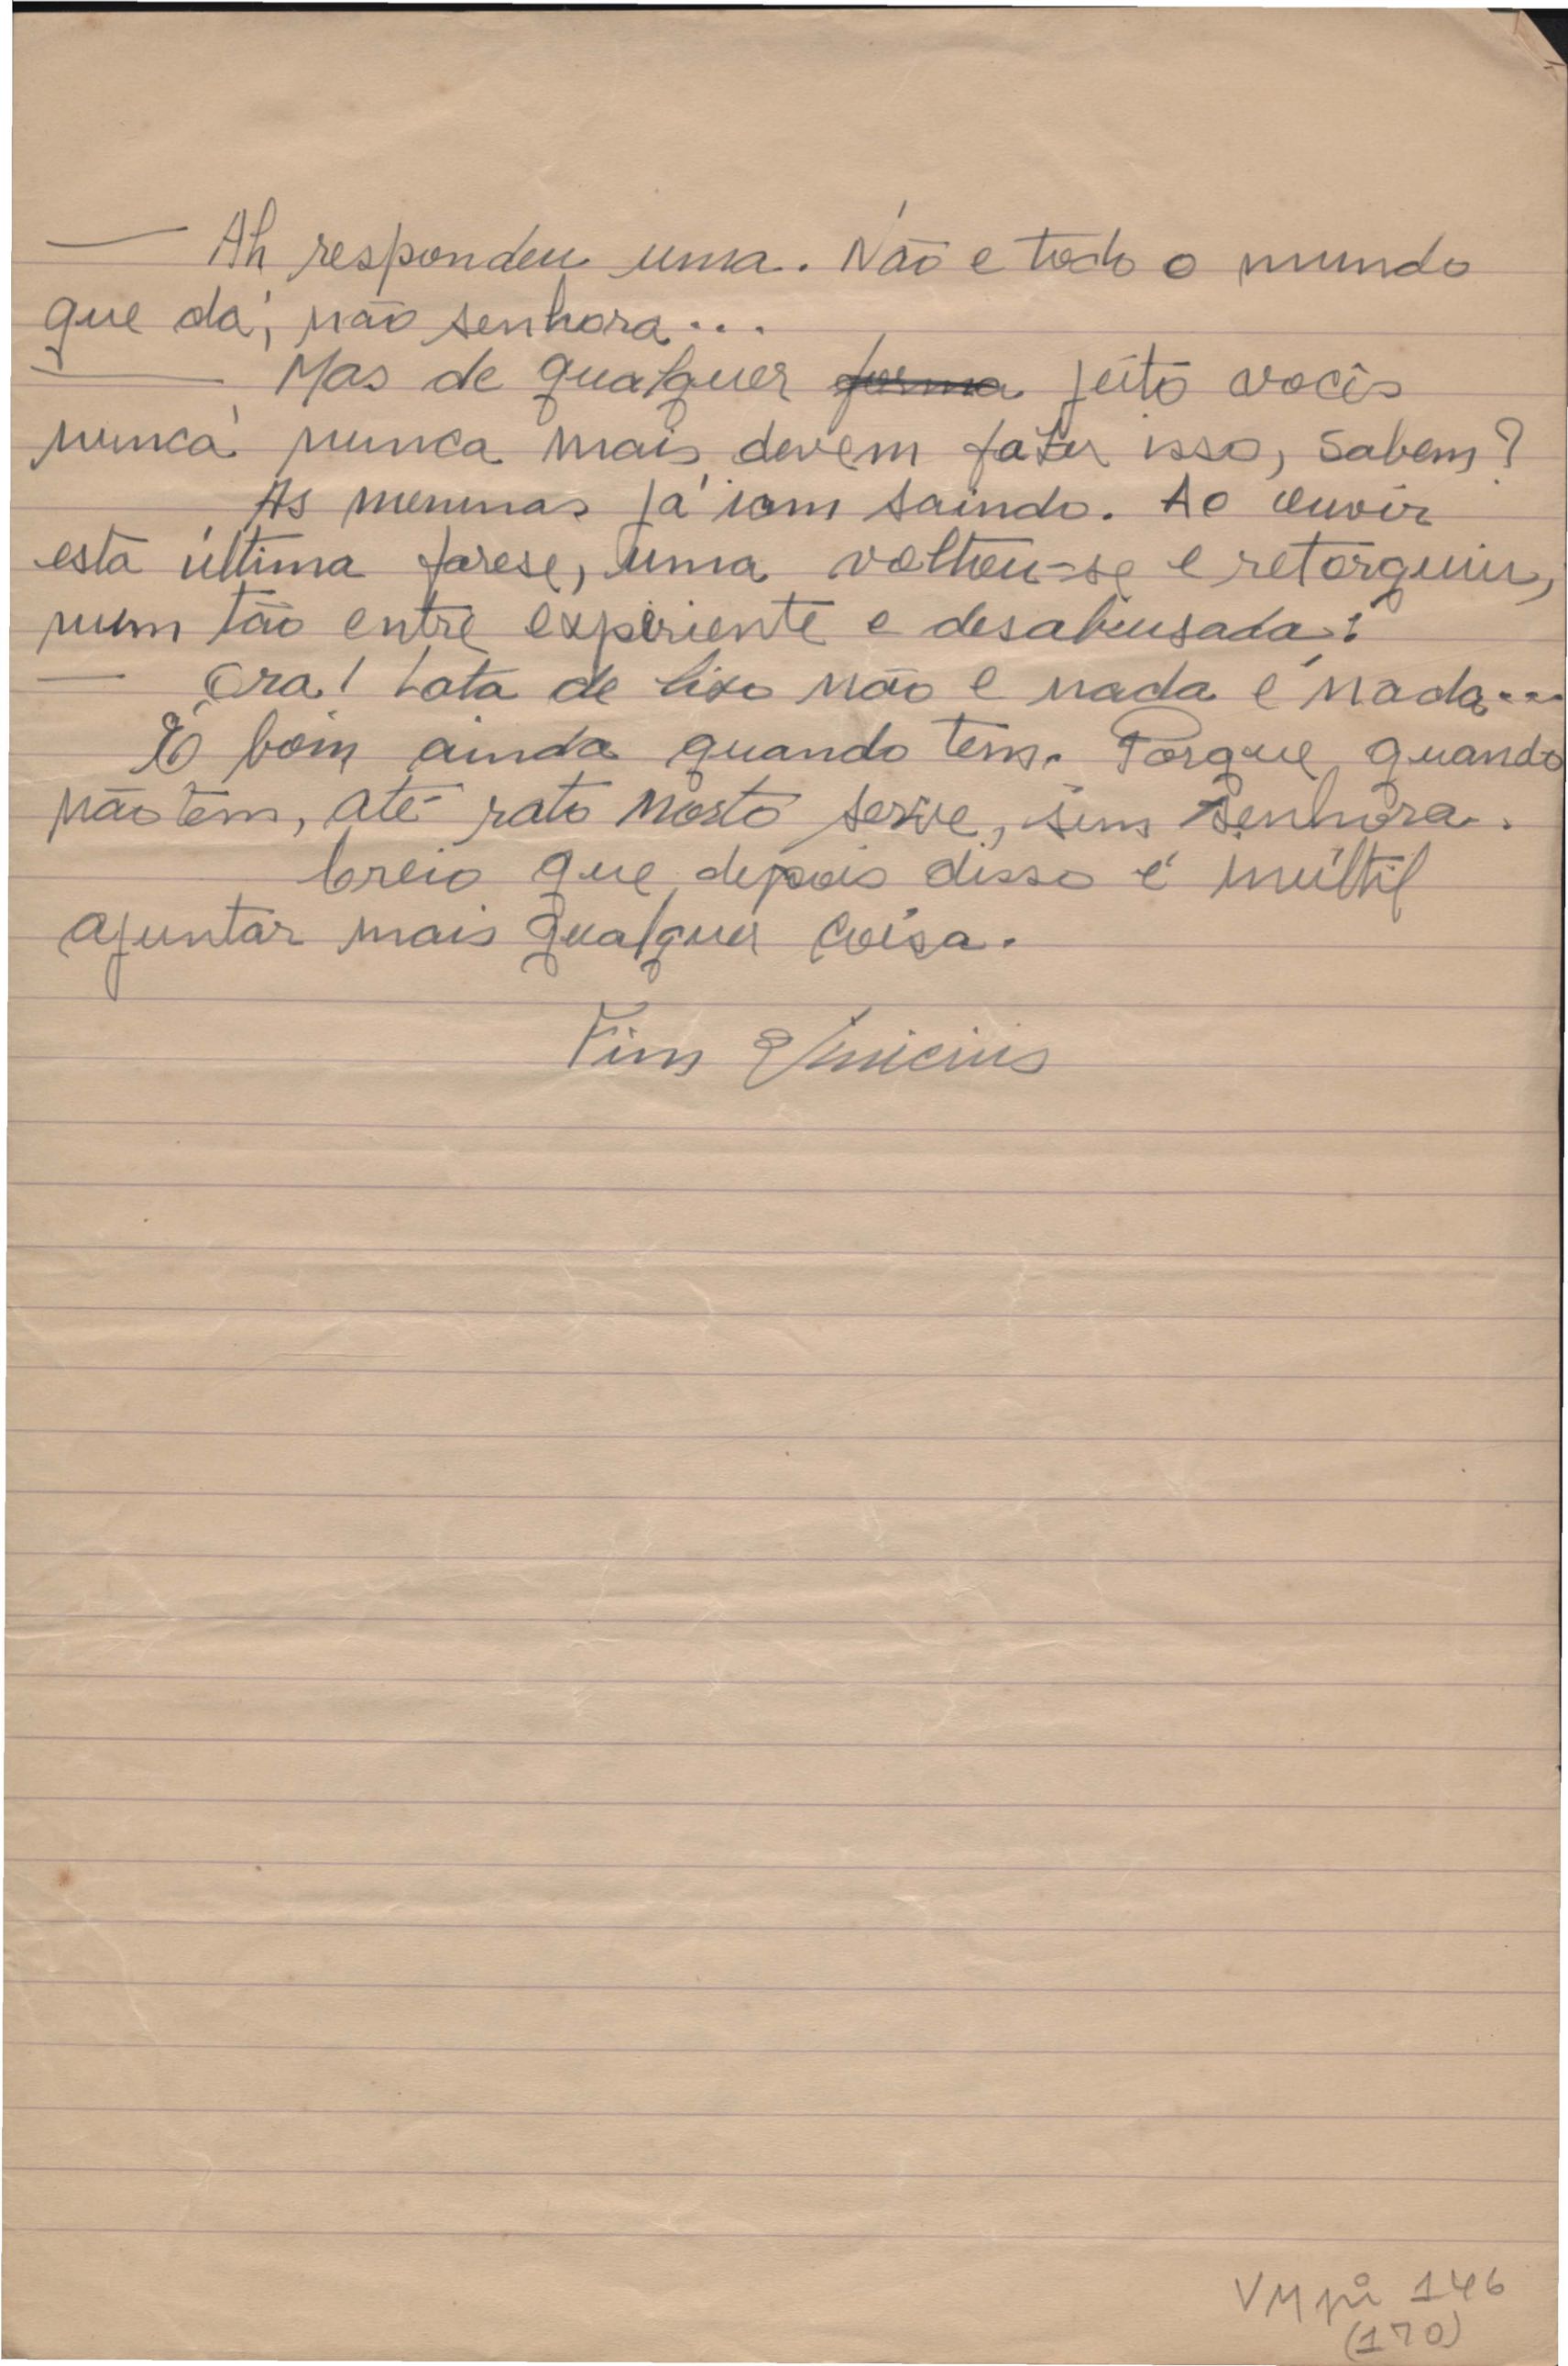 — Ah respondeu uma. Não é todo o mundo
que dá, não senhora...
— Mas de qualquer forma jeito vocês
nunca nunca mais devem fazer isso, sabem?
As meninas já iam saindo. Ao ouvir
esta última farese, uma voltou-se e retorquiu,
num tão entre experiente e desabusada:
— Ora! Lata de lixo não é nada é nada...
É bom ainda quando tem. Porque quando
não tem, até rato morto serve, sim senhora.
Creio que depois disso é inúltil
ajuntar mais qualquer coisa.
Fim Vinicius
VMpi 146
(170)